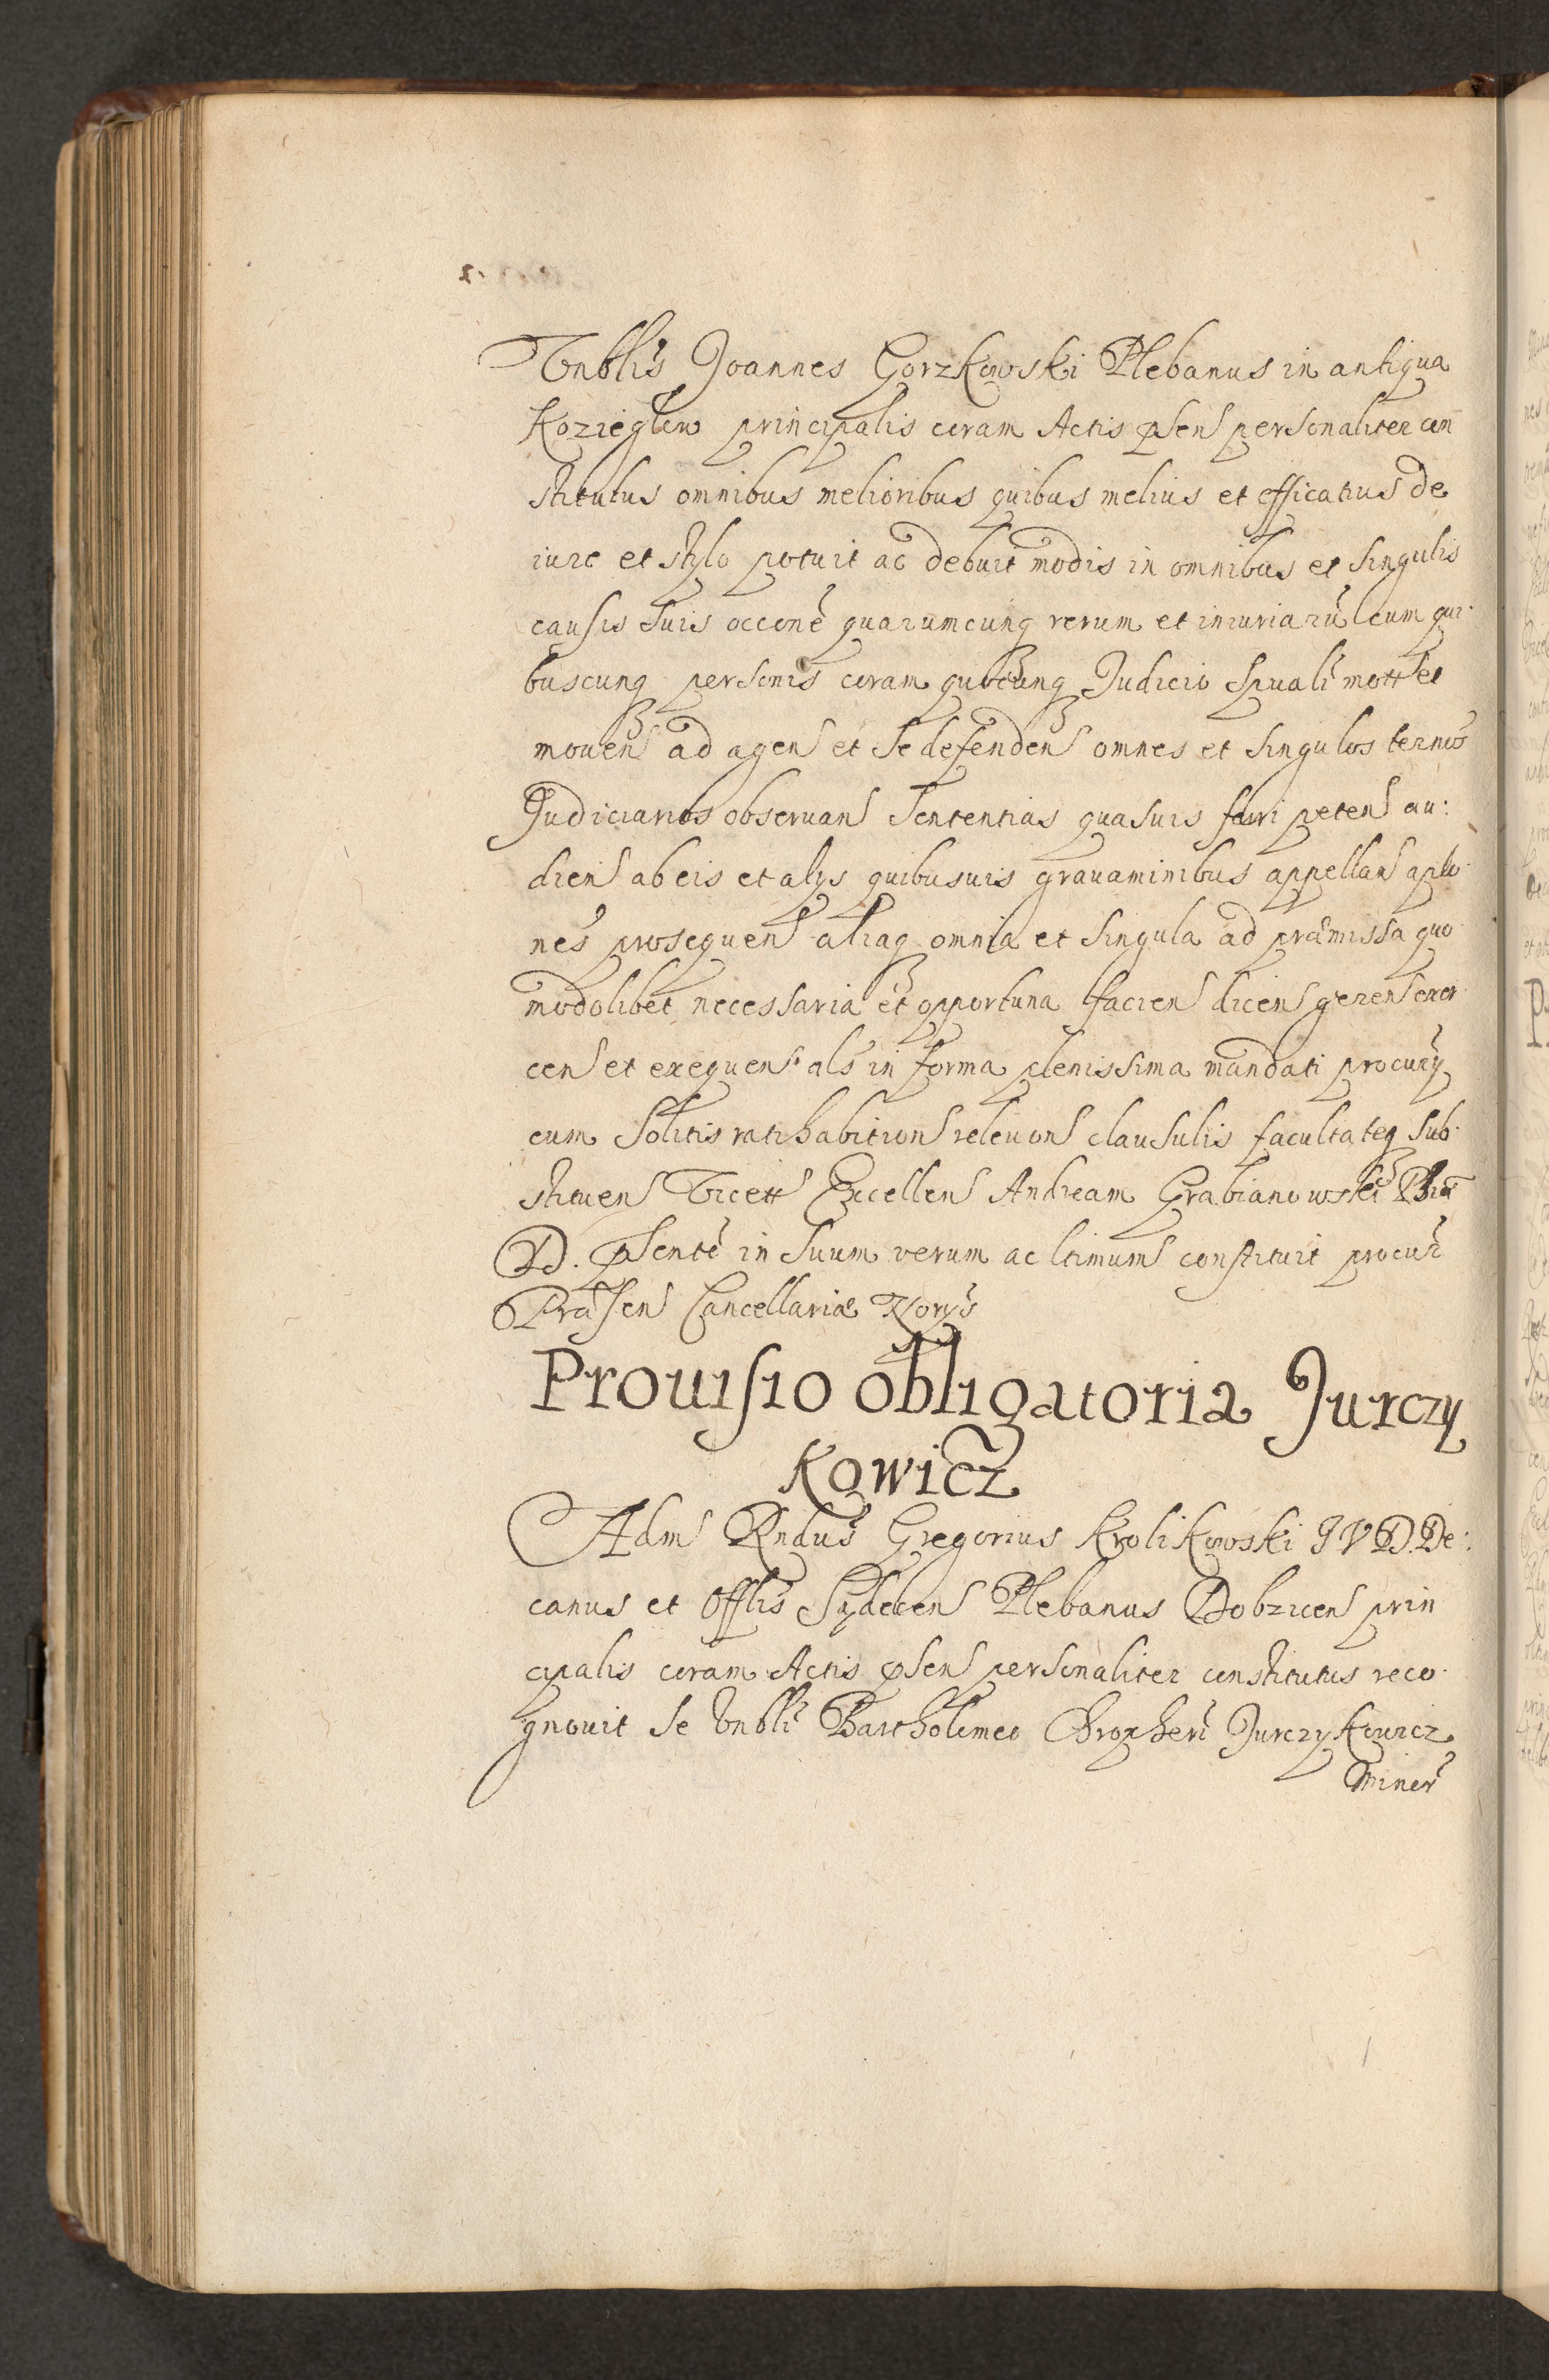 Vnblis Joannes Gorzkowski Plebanus in antiqua
Koziegłow principalis coram Actis psens personaliter con
stitutus omnibus melioribus quibus melius et efficatius de
iure et stylo potuit ac debuit modis in omnibus et singulis
causis suis occone quarumcunq rerum et iniuriarũ cum qui
buscunq personis coram quocunq Judicio spuali mott et
mouen ad agen et se defenden omnes et singulos termos
Judiciarios obseruan sententias quasuis ferri peten au:
dien ab eis et alys quibusuis grauaminibus appellan
nes prosequen aliaq omnia et singula ad præmissa quo
modolibet necessaria et opportuna facien dicen geren exer
cen et exequen als in forma plenissima mandati procury
cum solitis ratihabition releuon clausulis facultateq sub
stituen Vicett Excellen Andream Grabianowski Phiæ
D. psente in suum verum ac ltimum constituit procur
Præsen Cancellariæ Norys
Prouisio obligatoria Jurczy
Kowicz
Adm Rndus Gregorius Krolikowski J V D. De:
canus et Offlis Sądecen Plebanus Dobzicen prin
cipalis coram Actis psens personaliter constitutus reco
gnouit se Vnbli Bartholomeo Chropheri Jurczykowicz
Miner